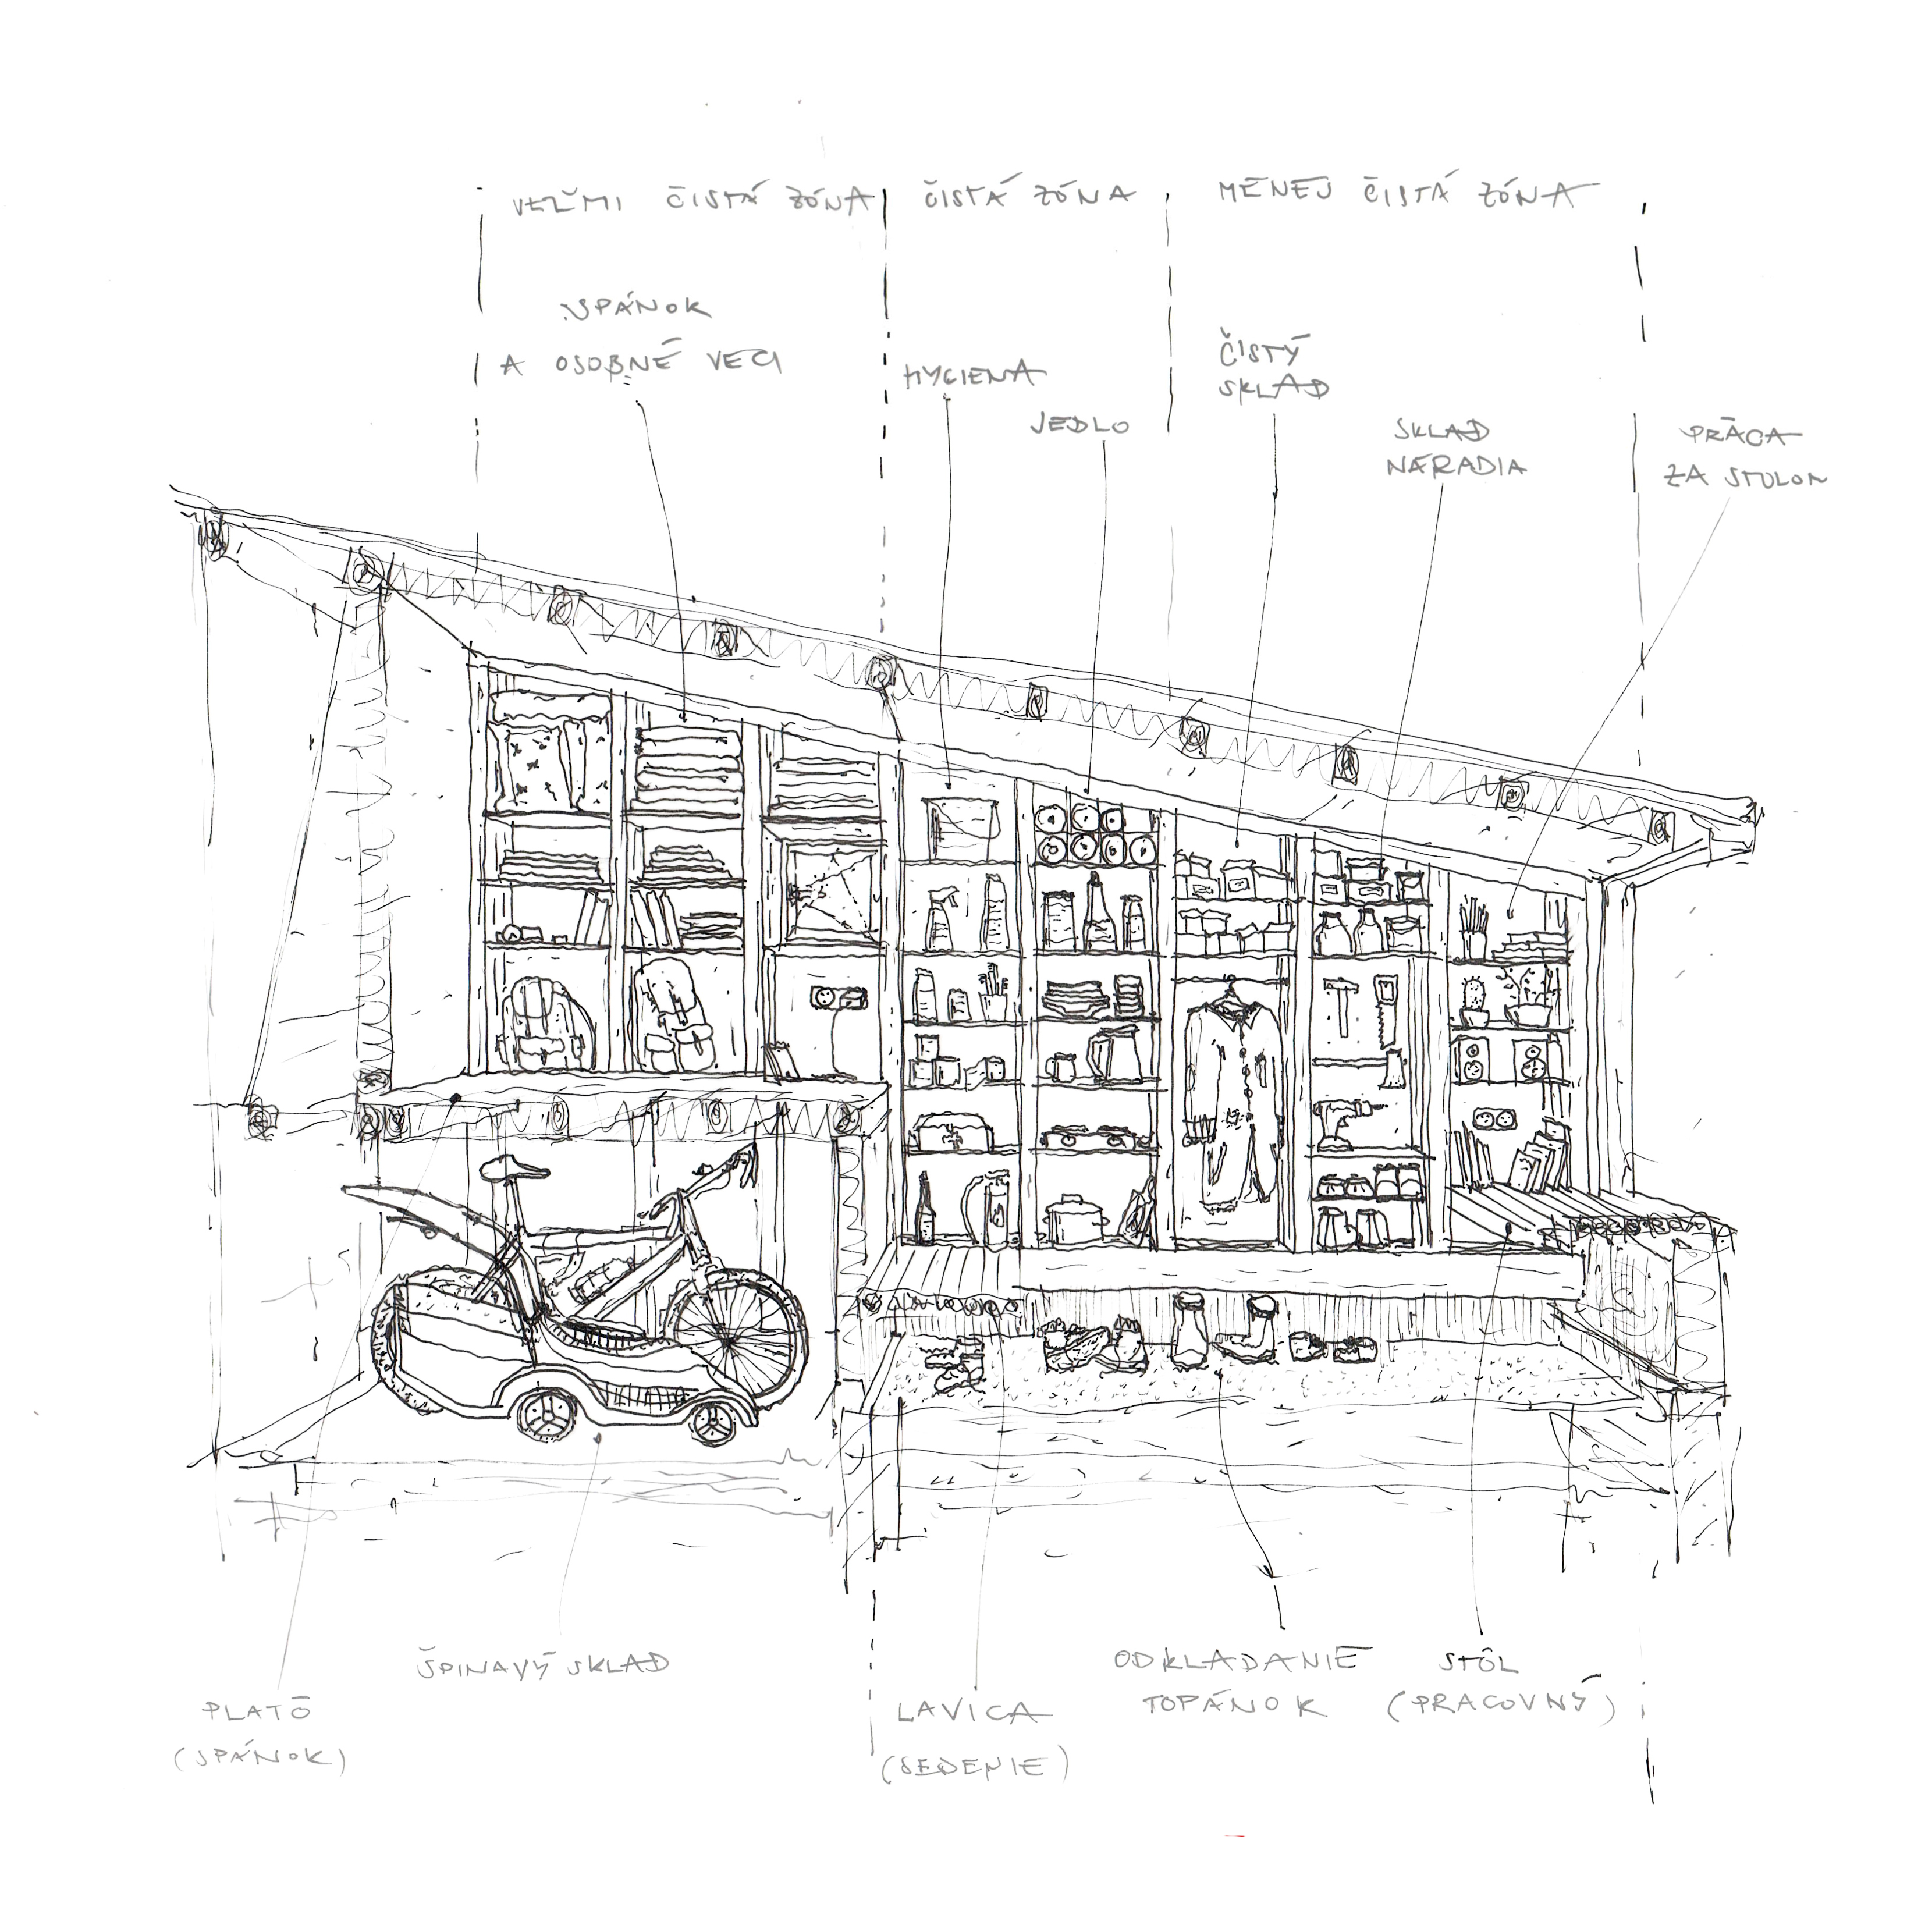 VEĽMI ČISTÁ ZÓNA
ČISTÁ ZÓNA
MENEJ ČISTÁ ZÓNA
SPÁNOK
A OSOBNÉ VECI
HYGIENA
JEDLO
ČISTÝ
SKLAD
SKLAD
NÁRADIA
PRÁCA
ZA STOLOM
PLATÓ
(SPÁNOK)
ŠPINAVÝ SKLAD
LAVICA
(SEDENIE)
ODKLADANIE
TOPÁNOK
STÔL
(PRACOVNÝ)